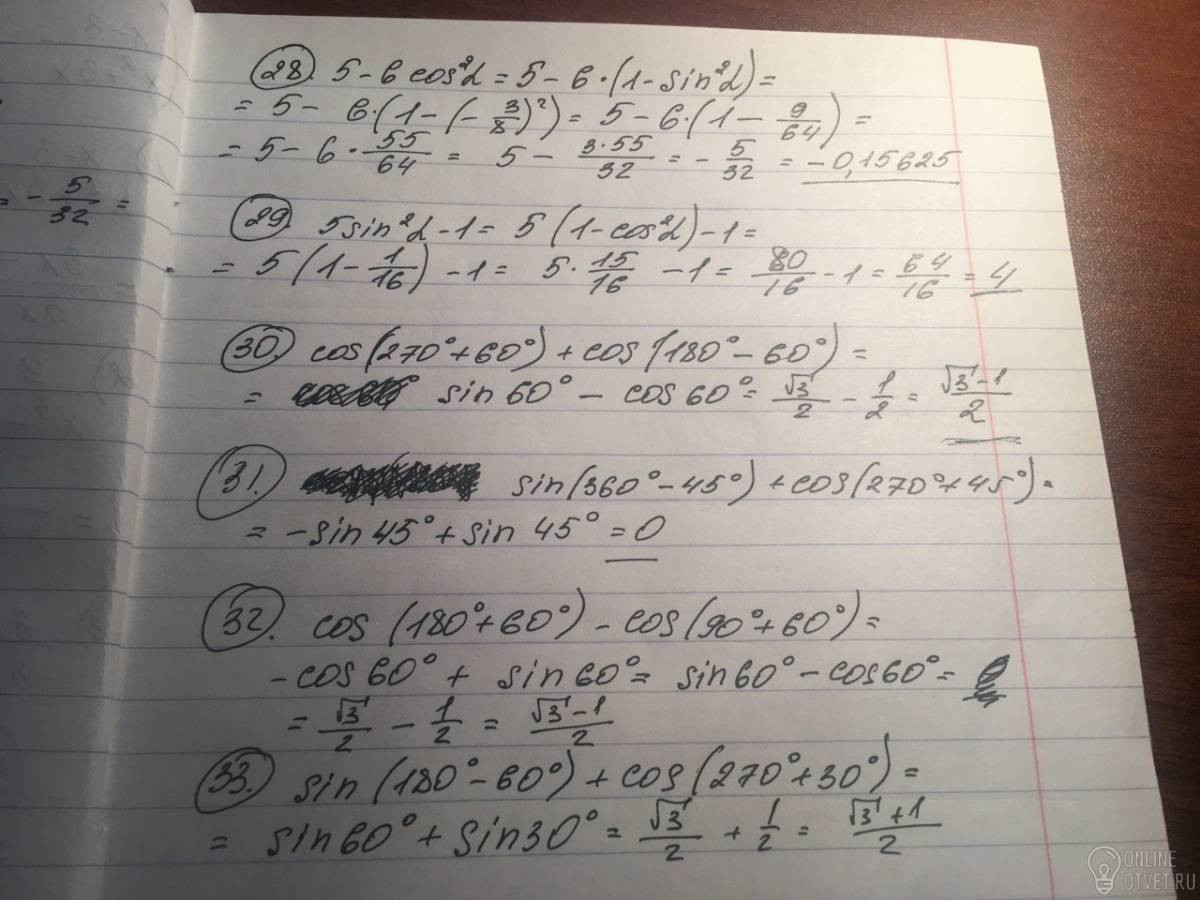 = - 5/32 =
28. 5 - 6 cos²α = 5 - 6·(1 - sin²α) =
= 5 - 6·(1 - (-3/8)²) = 5 - 6·(1 - 9/64) =
= 5 - 6·55/64 = 5 - 3·55/32 = -5/32 = -0,15625
29. 5sin²α - 1 = 5(1 - cos²α) - 1 =
= 5(1 - 1/16) - 1 = 5·15/16 - 1 = 80/16 - 1 = 64/16 = 4
30. cos(270° + 60°) + cos(180° - 60°) =
= sin60° - cos60° = √3/2 - 1/2 = (√3 - 1)/2
31. sin(360° - 45°) + cos(270° + 45°) =
= -sin45° + sin45° = 0
32. cos(180° + 60°) - cos(90° + 60°) =
-cos60° + sin60° = sin60° - cos60° =
= √3/2 - 1/2 = (√3 - 1)/2
33. sin(180° - 60°) + cos(270° + 30°) =
= sin60° + sin30° = √3/2 + 1/2 = (√3 + 1)/2
ONLINE
OTVET.RU